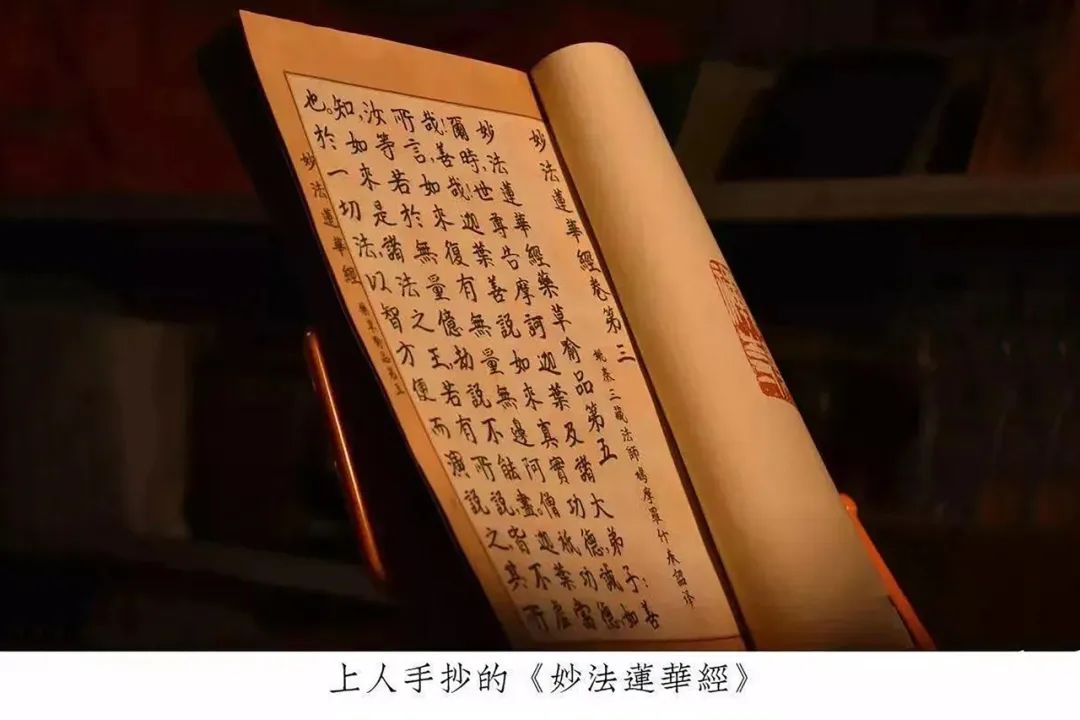 妙法蓮華經卷第三
姚秦三藏法師鳩摩羅什奉詔譯
妙法蓮華經藥草喻品第五
爾時,世尊告摩訶迦葉及諸大弟子:善
哉!善哉!迦葉善說如來真實功德,誠如
所言,如來復有無量無邊阿僧祇功德,
汝等若於無量億劫說不能盡。迦葉當
知,如來是諸法之王,若有所說,皆不虛
也。於一切法,以智方便而演說之,其所
妙法蓮華經 藥草喻品第五
上人手抄的《妙法蓮華經》